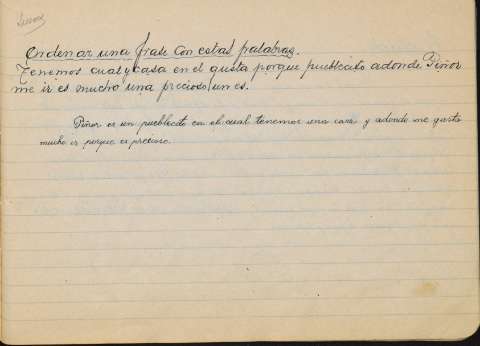 Lunes
Ordenar una frase con estas palabras.
Tenemos cual y casa en el gusta porque pueblecito adonde Piñor
me ir es mucho una precioso un es.
Piñor es un pueblecito en el cual tenemos una casa y adonde me gusta
mucho ir porque es precioso.